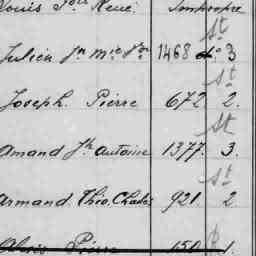 Louis Jos René. Impropre
St
Julien Jn Mie 1468 do 3
St
Joseph Pierre 672 2.
St
Amand Jh Antoine 1377. 3.
St
Armand Théo. Chales 921. 2
Alexis Pierre 150 1.